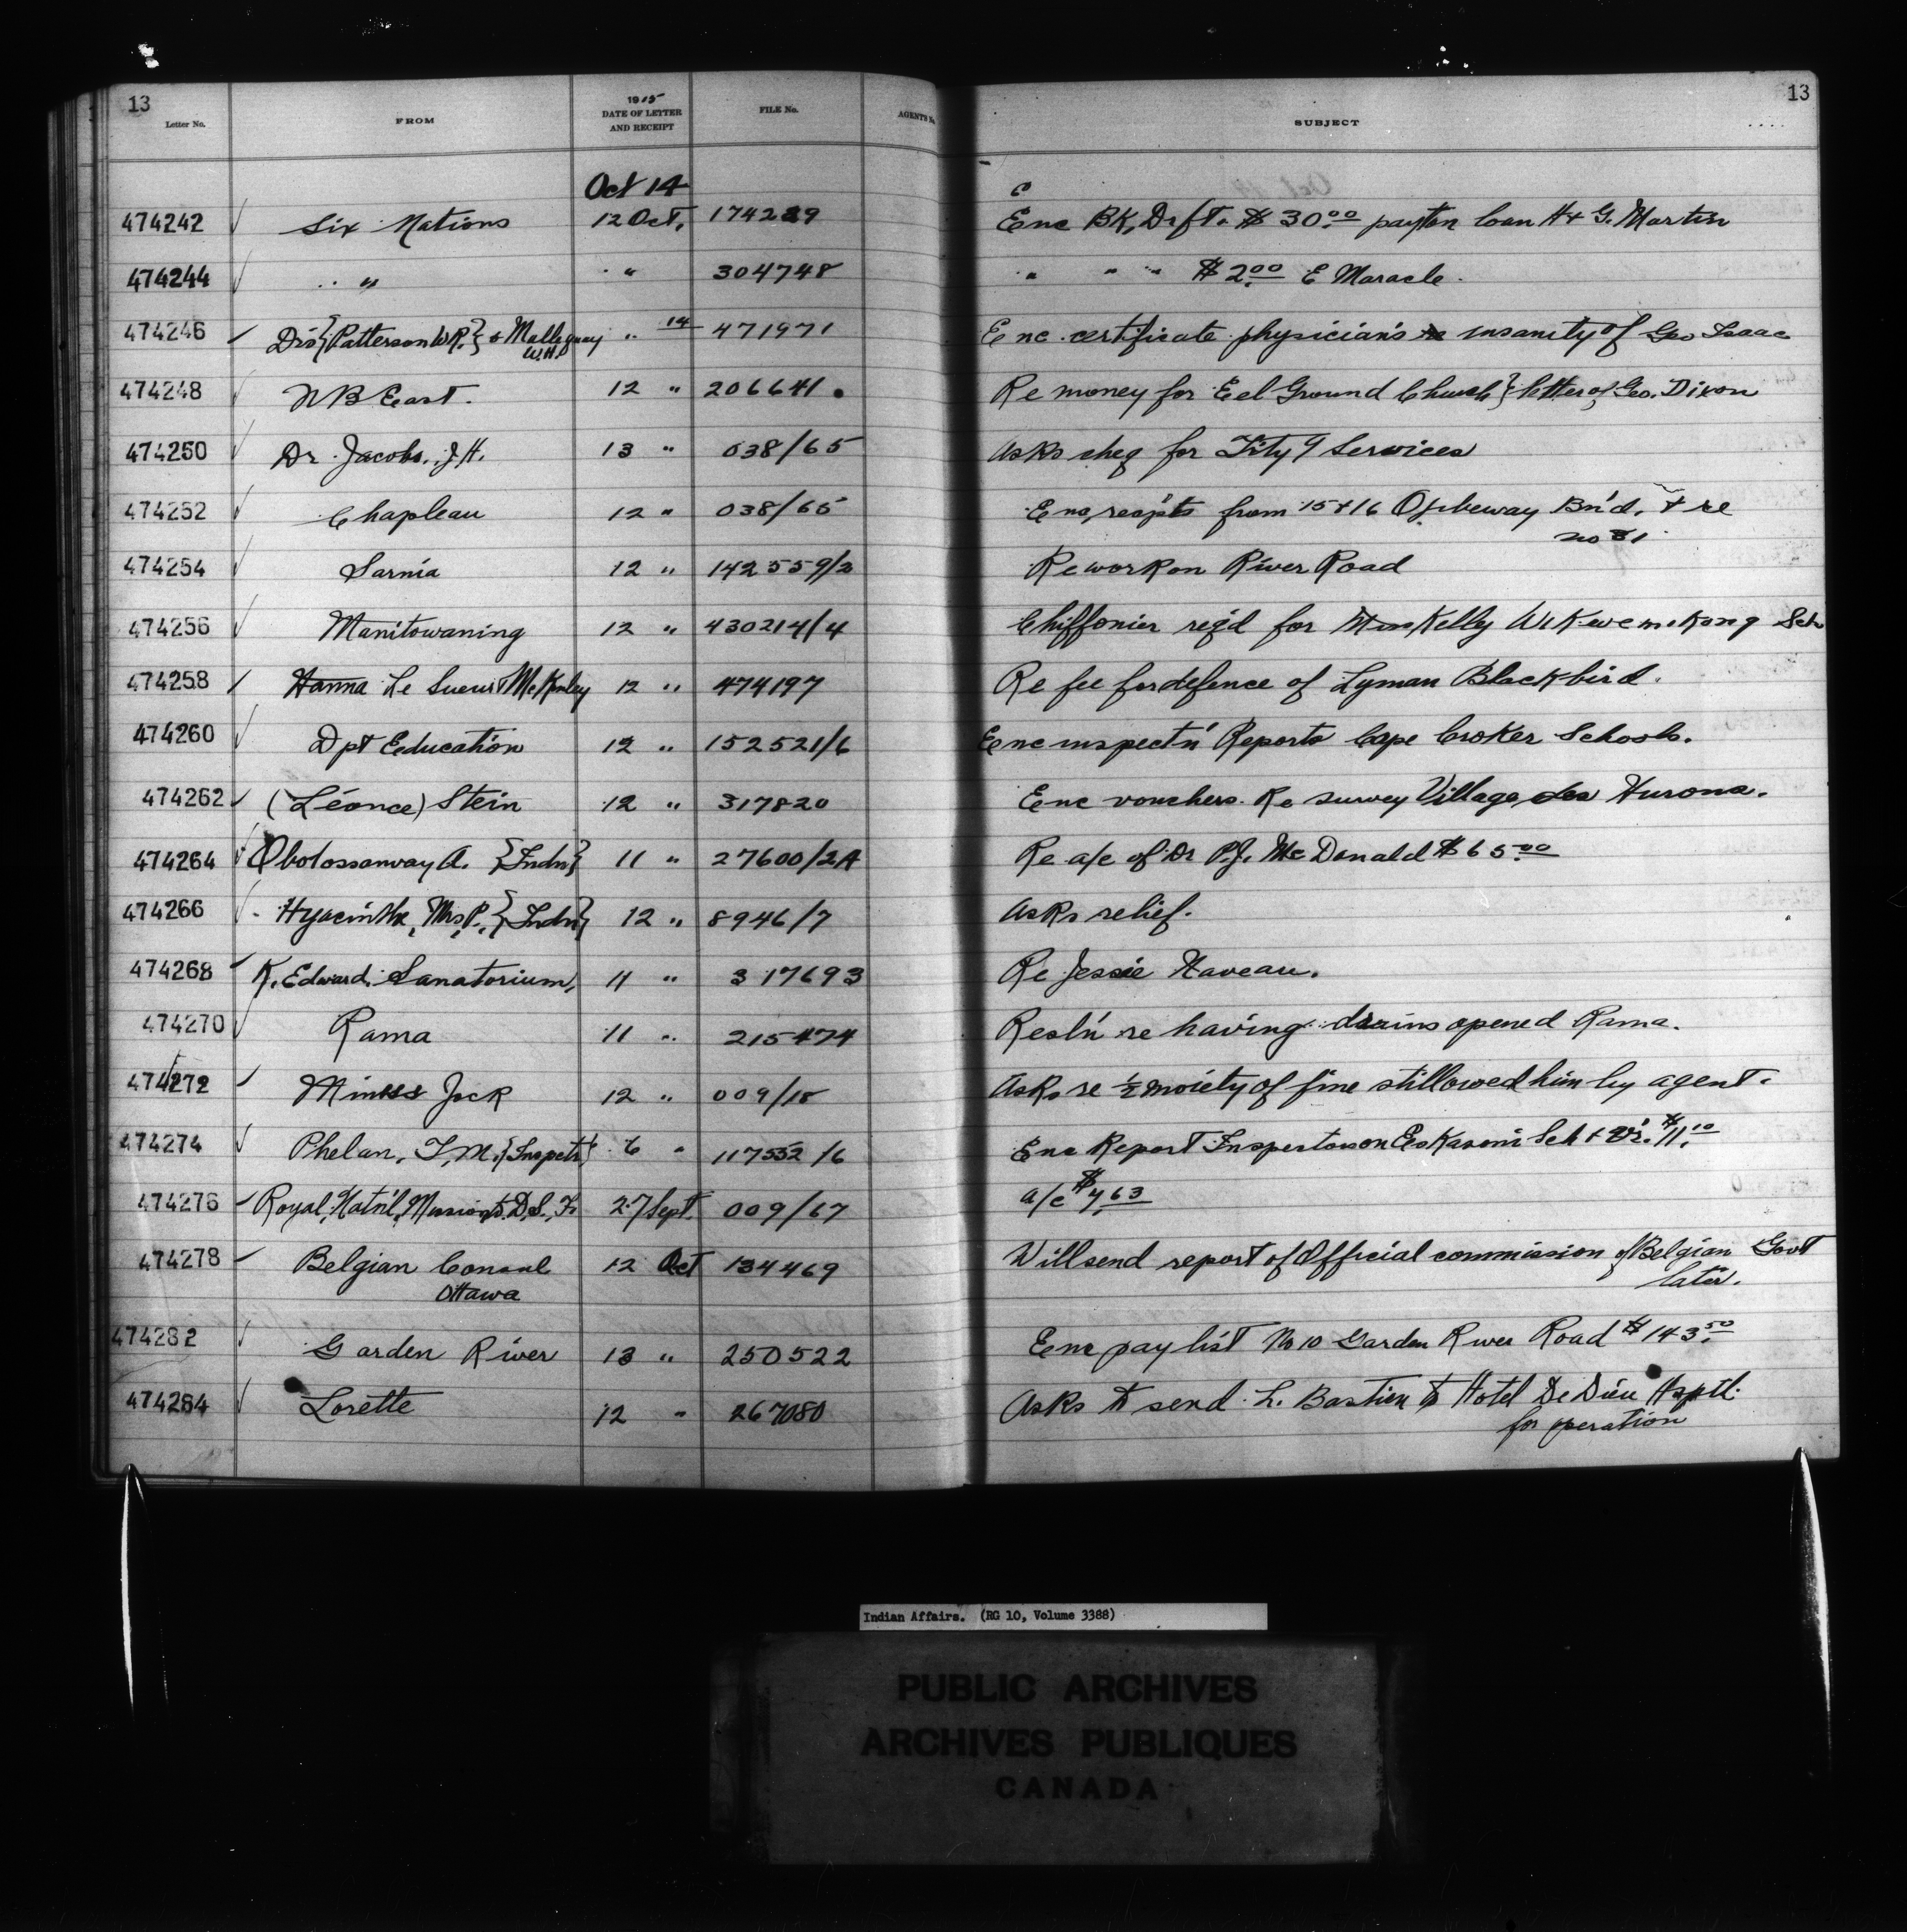 13
Letter No. FROM 1915 DATE OF LETTER AND RECEIPT FILE No. AGENT'S No. SUBJECT 13
Oct 14
474242 Six Nations 12 Oct. 174289 Enc BK, Drft. $30.00 payton loan H & G. Martin
474244 " " 304748 " " " $2.00 E Maracle.
474246 Drs {Patterson W.R.} & W.H. " 14 471971 Enc certificate physicians re insanity of Geo Isaac
474248 N B East. 12 " 206641. Re money for Eel Ground Church} letter of Geo. Dixon
474250 Dr Jacobs, J.H. 13 " 038/65 Asks cheq for Services
474252 Chapleau 12 " 038/65 Enc, recpts from 15 & 16 Ojibeway Bn'd. & re
no 31
474254 Sarnia 12 " 142559/2 Re work on River Road
474256 Manitowaning 12 " 430214/4 Chiffonier req'd for Kelly WiKwemiKong Sch
474258 Hanna Le Sueur & McKinley 12 " 474197 Re fee for defence of Lyman Blackbird.
474260 Dpt Education 12 " 152521/6 Enc inspectn' Reports Cape Croker Schools.
474262 (Léonce) Stein 12 " 317820 Enc vouchers Re survey Village des Hurons.
474264 Obotossanway A. {Indn} 11 " 27600/2A Re a/c of Dr P.J. McDonald $65.00
474266 Hyacinthe, Mrs P. {Indn} 12 " 8946/7 Asks relief.
474268 K. Edward Sanatorium, 11 " 317693 Re Jessie Naveau.
474270 Rama 11 " 215474 Resln' re having drains opened Rama.
474272 Jock 12 " 009/18 Asks re ½ moiety of fine still owed him by agent.
474274 Phelan, T, M. {Inspctr} 6 " 117552/6 Enc Report Inspection on Eskasoni Sch & Vr. $11.10
474276 Royal, Nat'l, Mission D.S.F. 27 Sept. 009/67 a/c $7.63
474278 Belgian Consul 12 Oct 134469 Will send report of Official commission of Belgian Govt
Ottawa later.
474282 Garden River 13 " 250522 Enc pay list No 10 Garden River Road $143.50
474284 Lorette 12 " 267080 Asks to send L. Bastien to Hotel De Dieu Hsptl.
for operation
Indian Affairs. (RG 10, Volume 3388)
PUBLIC ARCHIVES
ARCHIVES PUBLIQUES
CANADA